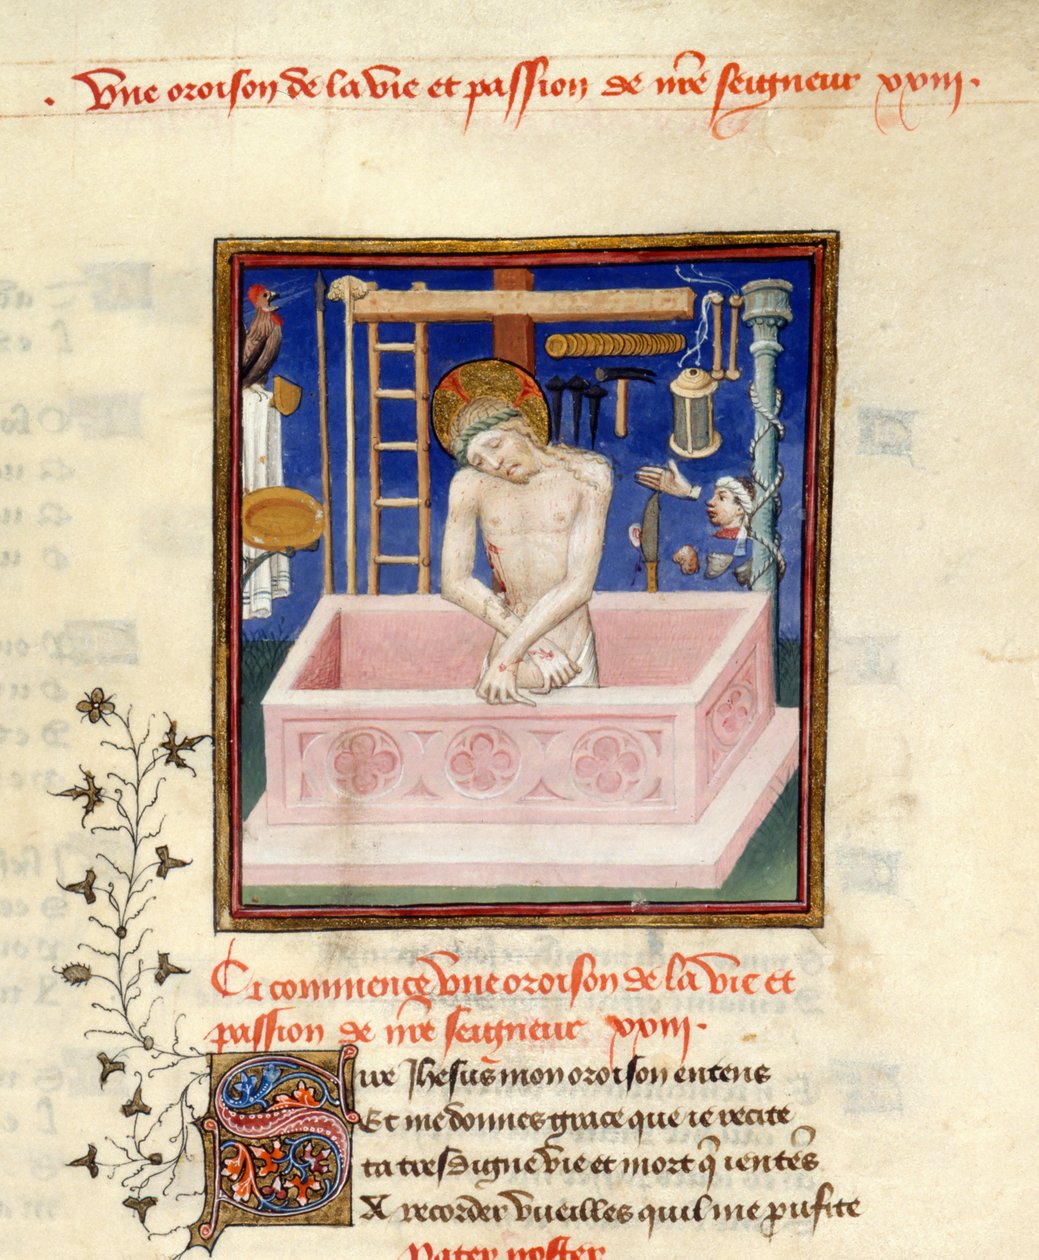 . Vne oroison de la vie et passion de nr̄e seigneur xxiii.
Cy commence vne oroison de la vie et
passion de nr̄e seigneur xxiii.
Sire Jhesus mon oroison entens
Et me donnes grace que ie recite
ta tres digne vie et mort q̄ ientēs
A recorder vueilles quil me pufite
Pater noster